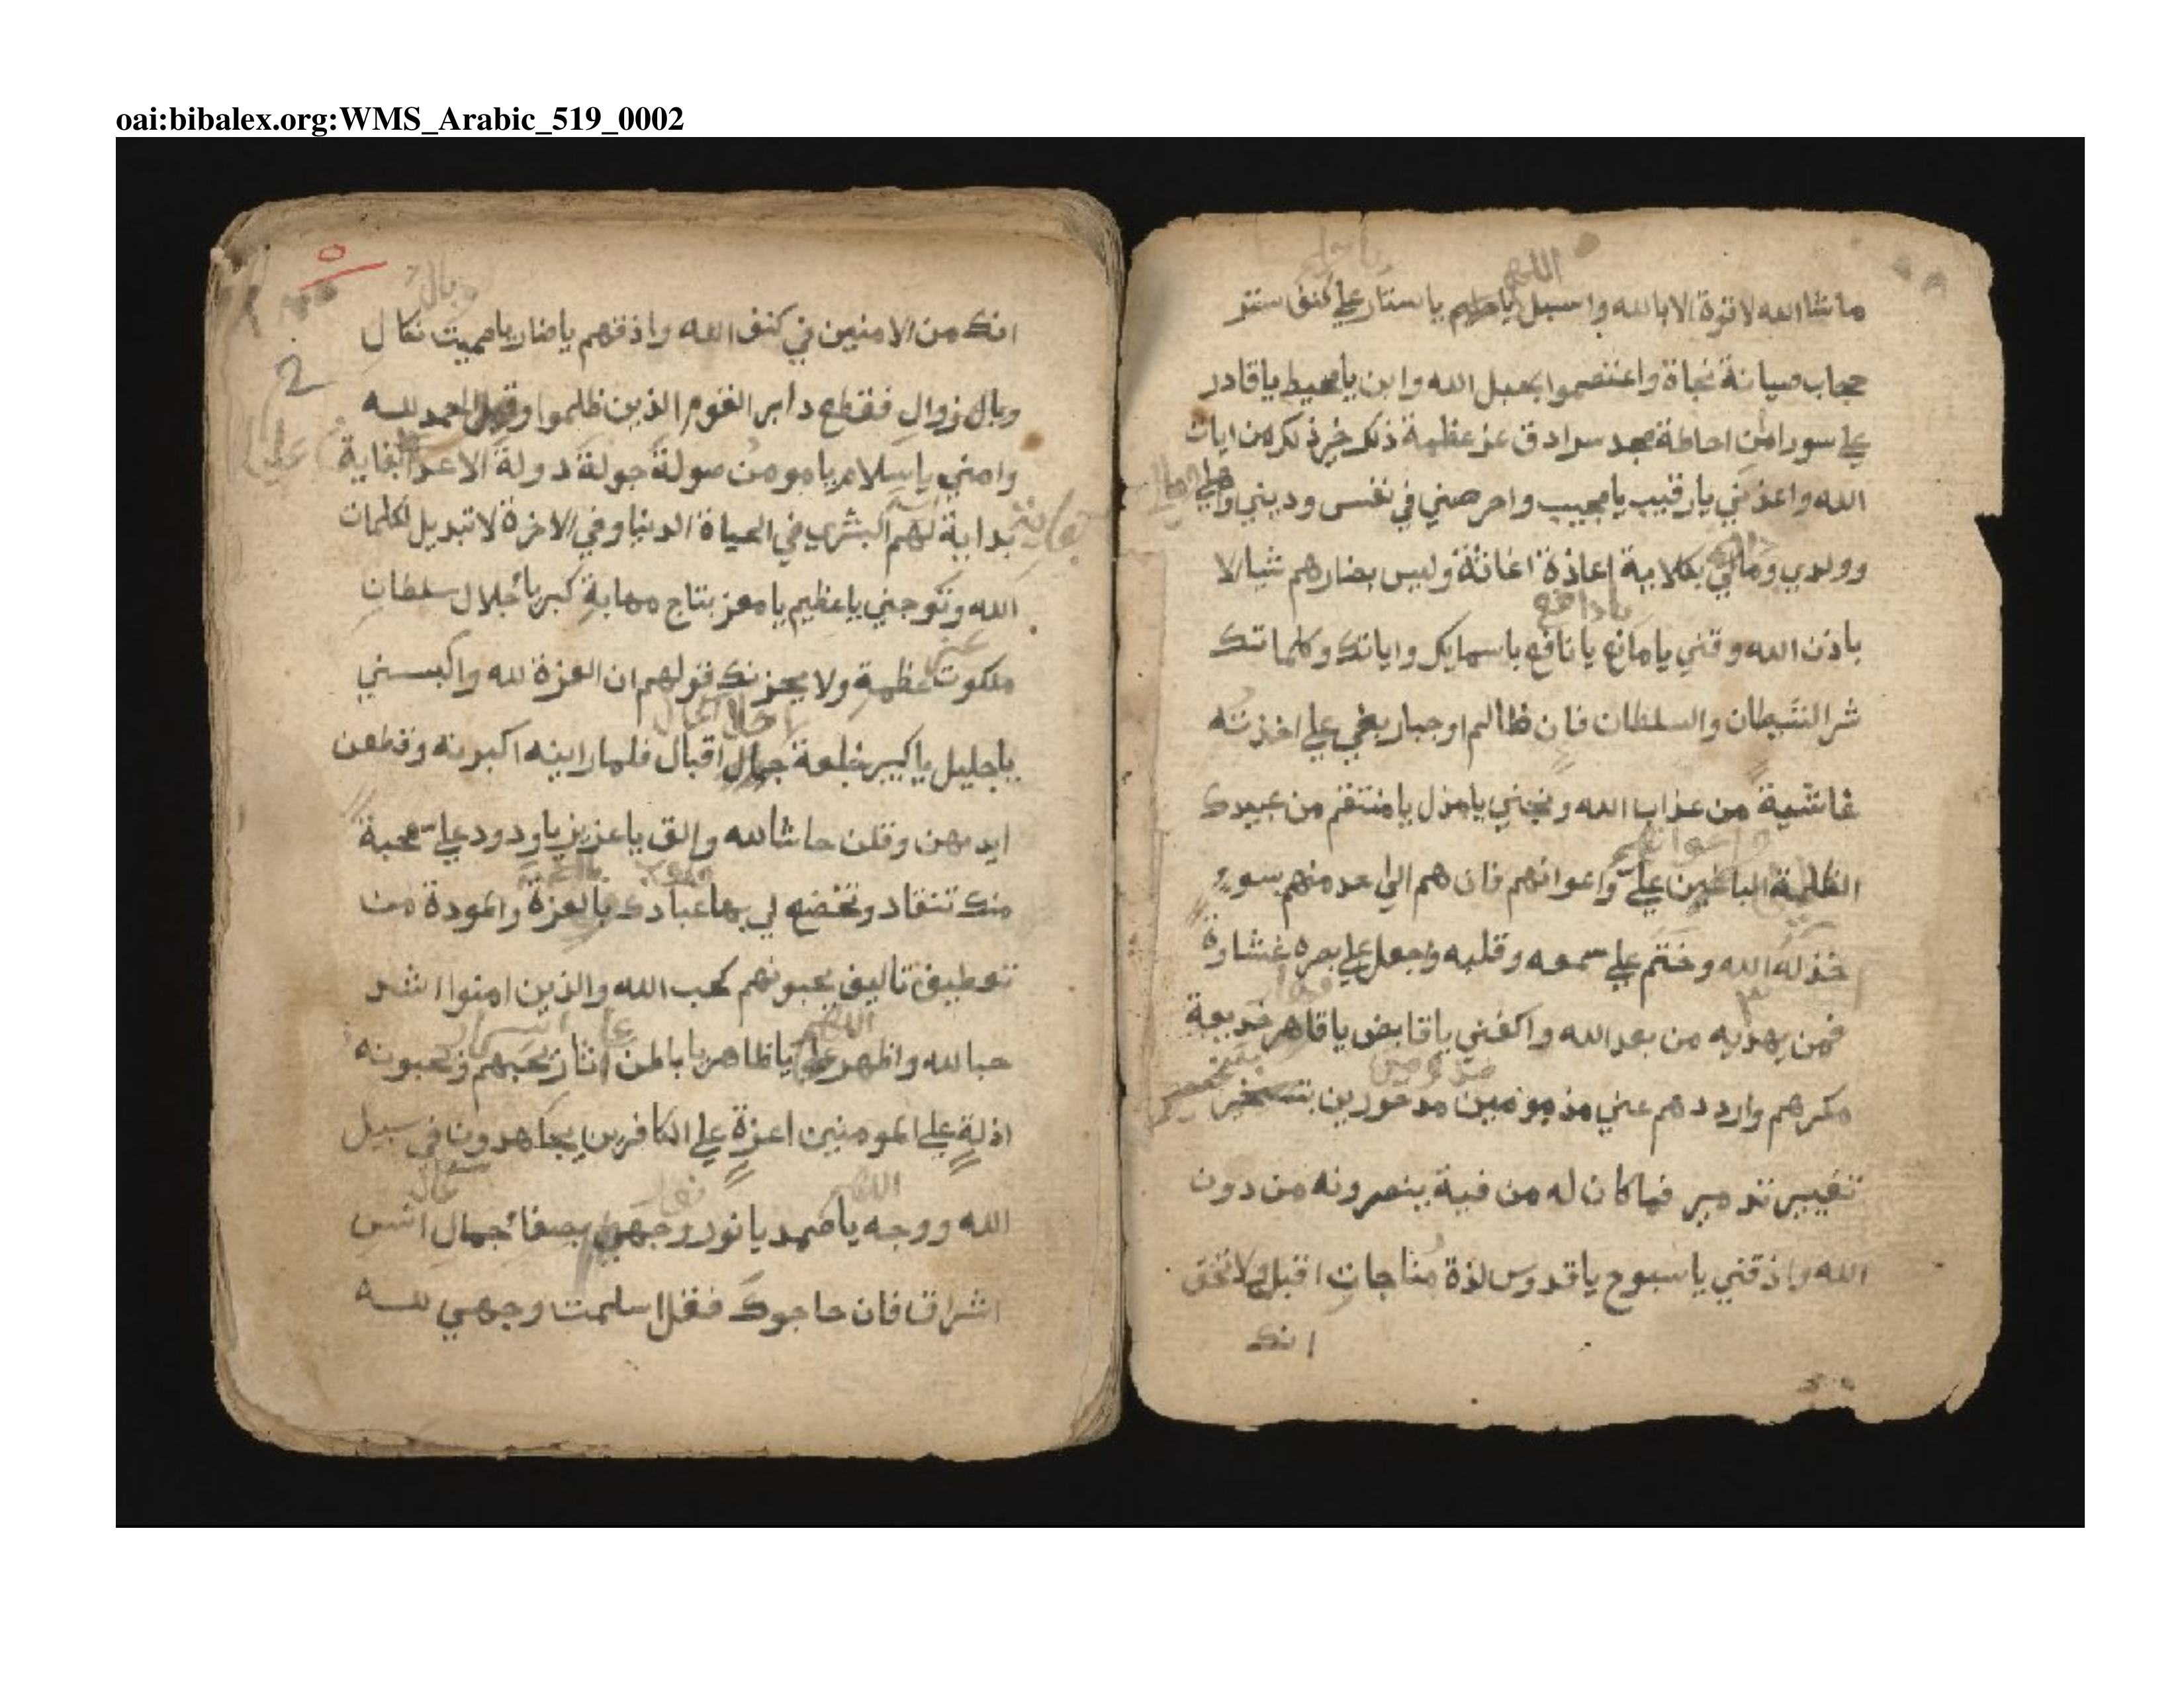 oai:bibalex.org:WMS_Arabic_519_0002
اللهم
ما شاالله لا قوة الا بالله واسبل يا حليم يا ستار علي كنف ستر
حجاب صيانة نجاة واعتصموا بحبل الله وابن يا محيط يا قادر
علي سور امن احاطة مجد سرادق عز عظمة ذلك خير ذلك من ايات
الله واعذني يا رقيب يا مجيب واحرصني في نفسي وديني واهلي
وولدي ومالي بكلاية اعاذة اغاثة وليس بضارهم شيا الا
يا دافع
باذن الله وقني يا مانع يا نافع باسمايك واياتك وكلماتك
شر الشيطان والسلطان فان ظالم او جبار بغي علي اخذته
غاشية من عذاب الله ونجني يا مذل يا منتقم من عبيدك
واعوانهم
الظلمة الباغين علي واعوانهم فان هم الي احد منهم بسوء
خذله الله وختم علي سمعه وقلبه وجعل علي بصره غشاوة
فمن يهديه من بعد الله واكفني يا قابض يا قاهر خديعة
مكرهم وارددهم عني مذمومين مدحورين
تغيير تدمير فما كان له من فية ينصرونه من دون
الله واذقني يا سبوح يا قدوس لذة مناجات اقبل ولا تخف
انك
٥
2
وبال
انك من الامنين في كنف الله واذقهم يا ضار يا مميت نكال
وبال زوال فقطع دابر القوم الذين ظلموا وقيل الحمد لله
وامني يا سلام يا مومن صولة جولة دولة الاعدا بغاية
بداية لهم البشري في الحياة الدنيا وفي الاخرة لا تبديل لكلمات
الله وتوجني يا عظيم يا معز بتاج مهابة كبريا جلال سلطان
ملكوت عظمة ولا يحزنك قولهم ان العزة لله والبسني
يا جليل يا كبير خلعة جمال اقبال فلما راينه اكبرنه وقطعن
ايديهن وقلن حاشا لله والق يا عزيز يا ودود علي محبة
منك تنقاد وتخضع لي بها عبادك بالعزة والمودة من
تعطيف تاليف يحبونهم كحب الله والذين امنوا اشد
اللهم
حبا لله واظهر علي يا ظاهر يا باطن اثار يحبهم ويحبونه
اذلة علي المومنين اعزة علي الكافرين يجاهدون في سبيل
اللهم
الله ووجه يا صمد يا نور وجهي بصفا جمال انس
اشراق فان حاجوك فقل اسلمت وجهي لله